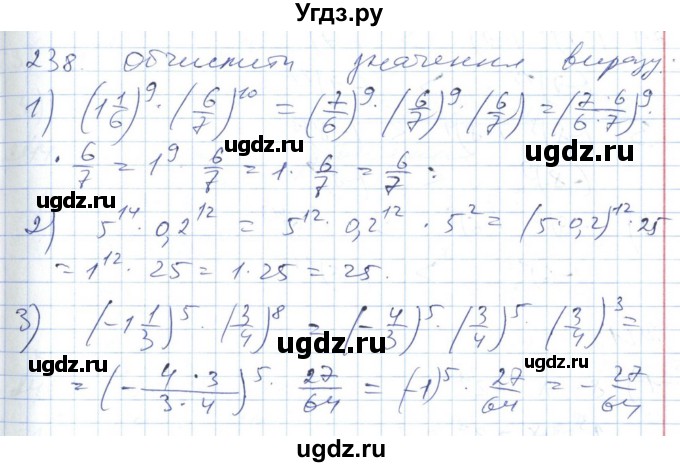 Угдз.ру
238. Обчислити значення виразу.
1) (1 1/6)^9 · (6/7)^10 = (7/6)^9 · (6/7)^9 · (6/7) = (7·6/6·7)^9 ·
· 6/7 = 1^9 · 6/7 = 1 · 6/7 = 6/7 ;
ugdz.ru ugdz.ru ugdz.ru
2) 5^14 · 0,2^12 = 5^12 · 0,2^12 · 5^2 = (5·0,2)^12 · 25
ugdz.ru ugdz.ru
= 1^12 · 25 = 1 · 25 = 25.
3) (-1 1/3)^5 · (3/4)^8 = (-4/3)^5 · (3/4)^5 · (3/4)^3 =
ugdz.ru ugdz.ru ugdz.ru
= (- 4·3/3·4)^5 · 27/64 = (-1)^5 · 27/64 = - 27/64
ugdz.ru ugdz.ru
ugdz.ru